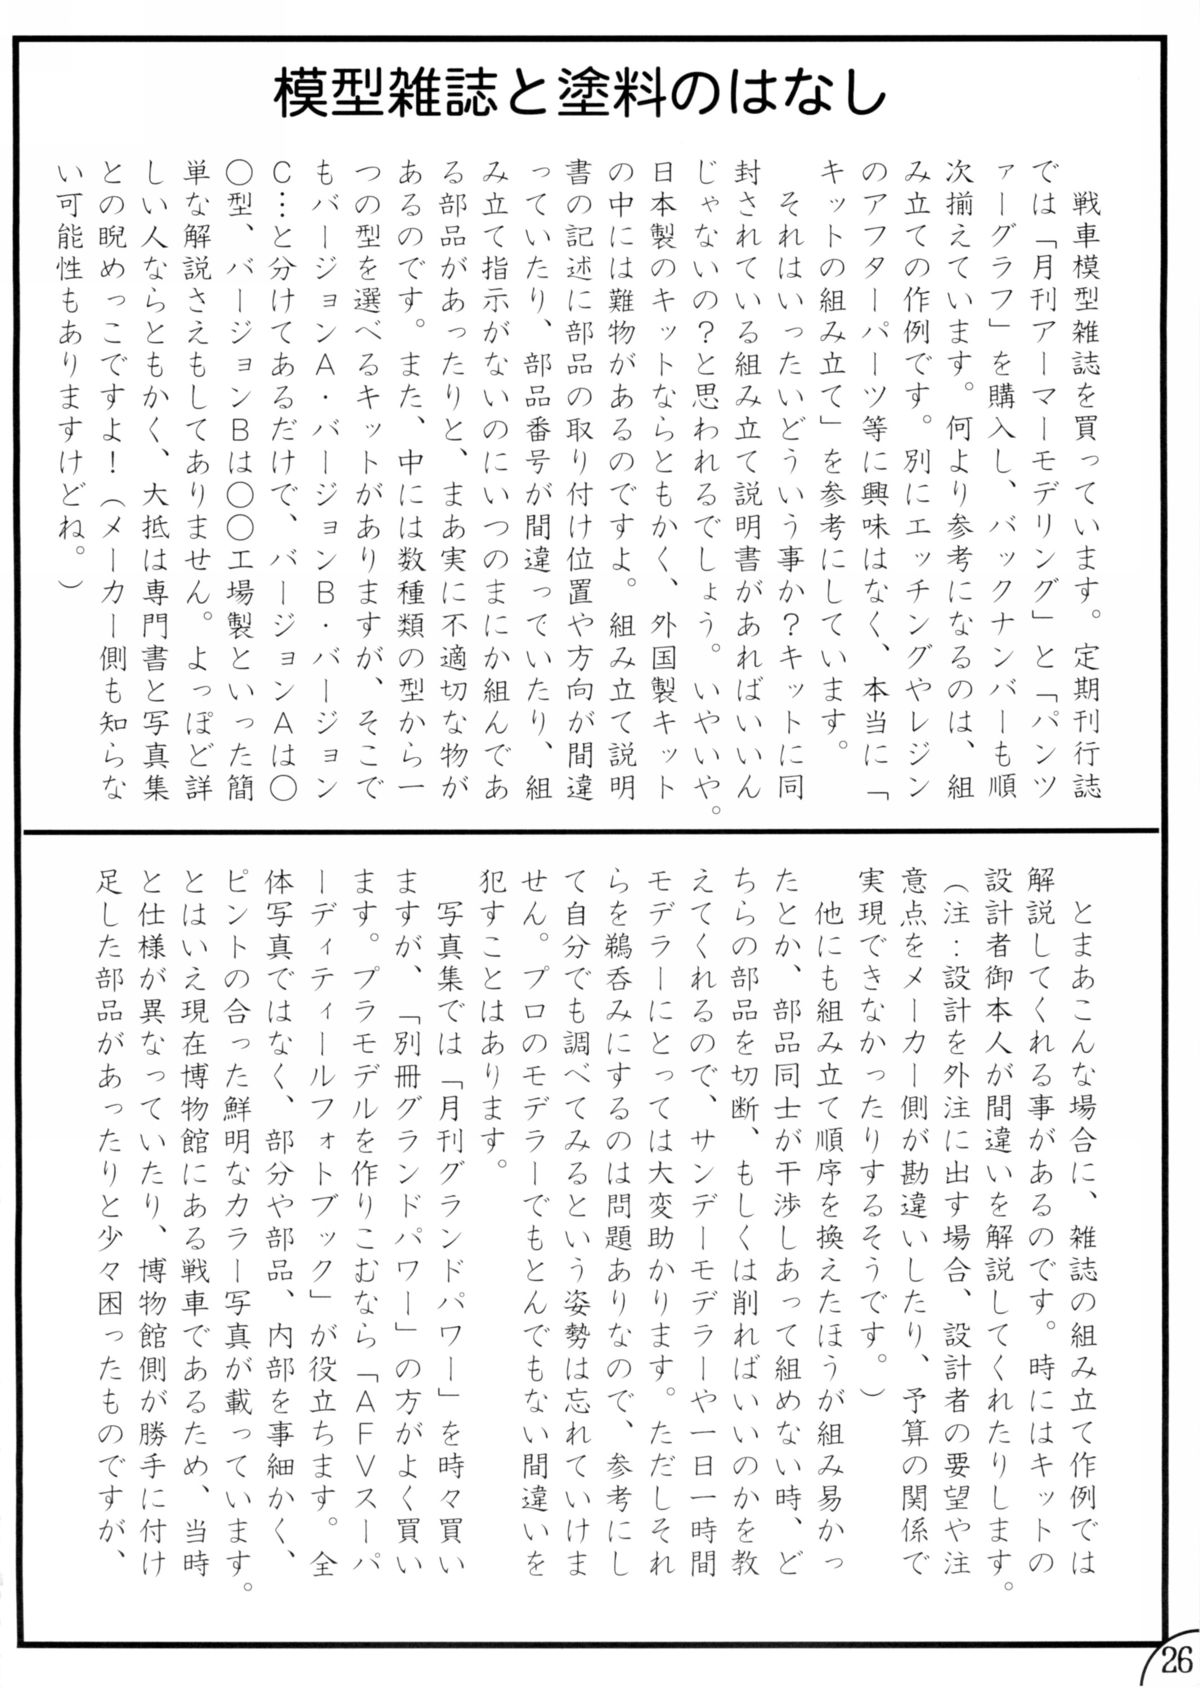 模型雑誌と塗料のはなし
戦車模型雑誌を買っています。定期刊行誌
では「月刊アーマーモデリング」と「パンツ
ァーグラフ」を購入し、バックナンバーも順
次揃えています。何より参考になるのは、組
み立ての作例です。別にエッチングやレジン
のアフターパーツ等に興味はなく、本当に「
キットの組み立て」を参考にしています。
それはいったいどういう事か？キットに同
封されている組み立て説明書があればいいん
じゃないの？と思われるでしょう。いやいや。
日本製のキットならともかく、外国製キット
の中には難物があるのですよ。組み立て説明
書の記述に部品の取り付け位置や方向が間違
っていたり、部品番号が間違っていたり、組
み立て指示がないのにいつのまにか組んであ
る部品があったりと、まあ実に不適切な物が
あるのです。また、中には数種類の型から一
つの型を選べるキットがありますが、そこで
もバージョンＡ・バージョンＢ・バージョン
Ｃ…と分けてあるだけで、バージョンＡは〇
〇型、バージョンＢは〇〇工場製といった簡
単な解説さえもしてありません。よっぽど詳
しい人ならともかく、大抵は専門書と写真集
との睨めっこですよ！（メーカー側も知らな
い可能性もありますけどね。）
とまあこんな場合に、雑誌の組み立て作例では
解説してくれる事があるのです。時にはキットの
設計者御本人が間違いを解説してくれたりします。
（注：設計を外注に出す場合、設計者の要望や注
意点をメーカー側が勘違いしたり、予算の関係で
実現できなかったりするそうです。）
他にも組み立て順序を換えたほうが組み易かっ
たとか、部品同士が干渉しあって組めない時、ど
ちらの部品を切断、もしくは削ればいいのかを教
えてくれるので、サンデーモデラーや一日一時間
モデラーにとっては大変助かります。ただしそれ
らを鵜呑みにするのは問題ありなので、参考にし
て自分でも調べてみるという姿勢は忘れていけま
せん。プロのモデラーでもとんでもない間違いを
犯すことはあります。
写真集では「月刊グランドパワー」を時々買い
ますが、「別冊グランドパワー」の方がよく買い
ます。プラモデルを作りこむなら「ＡＦＶスーパ
ーディティールフォトブック」が役立ちます。全
体写真ではなく、部分や部品、内部を事細かく、
ピントの合った鮮明なカラー写真が載っています。
とはいえ現在博物館にある戦車であるため、当時
と仕様が異なっていたり、博物館側が勝手に付け
足した部品があったりと少々困ったものですが、
26